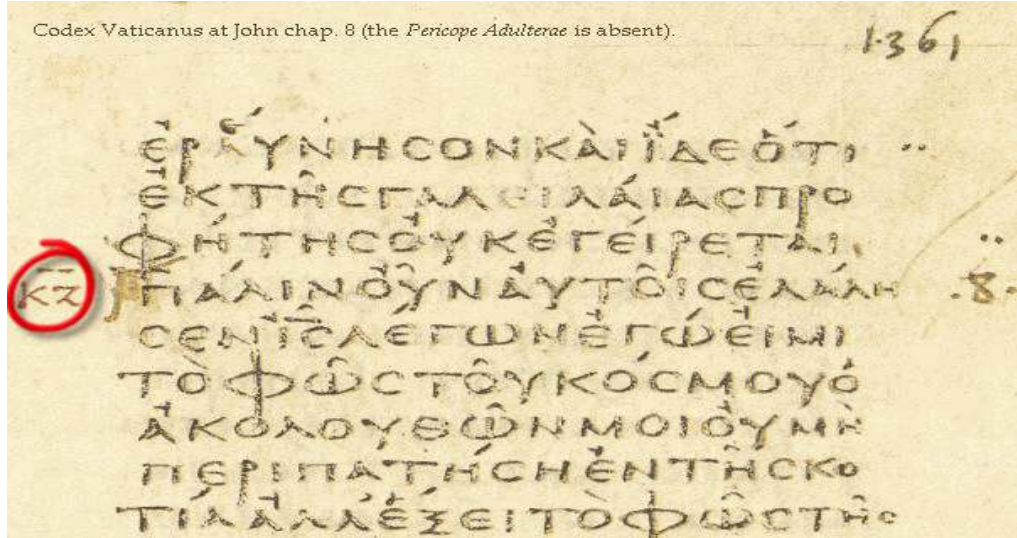 Codex Vaticanus at John chap. 8 (the Pericope Adulterae is absent).
1361
ἐραύνησον καὶ ἴδε ὅτι
ἐκ τῆς γαλειλαίας προ
φήτης οὐκ ἐγείρεται
κζ πάλιν οὖν αὐτοῖς ἐλάλη 8
σεν ις λέγων ἐγώ εἰμι
τὸ φῶς τοῦ κόσμου ὁ
ἀκολουθῶν μοι οὐ μὴ
περιπατήσῃ ἐν τῇ σκο
τίᾳ ἀλλ ἕξει τὸ φῶς τῆς